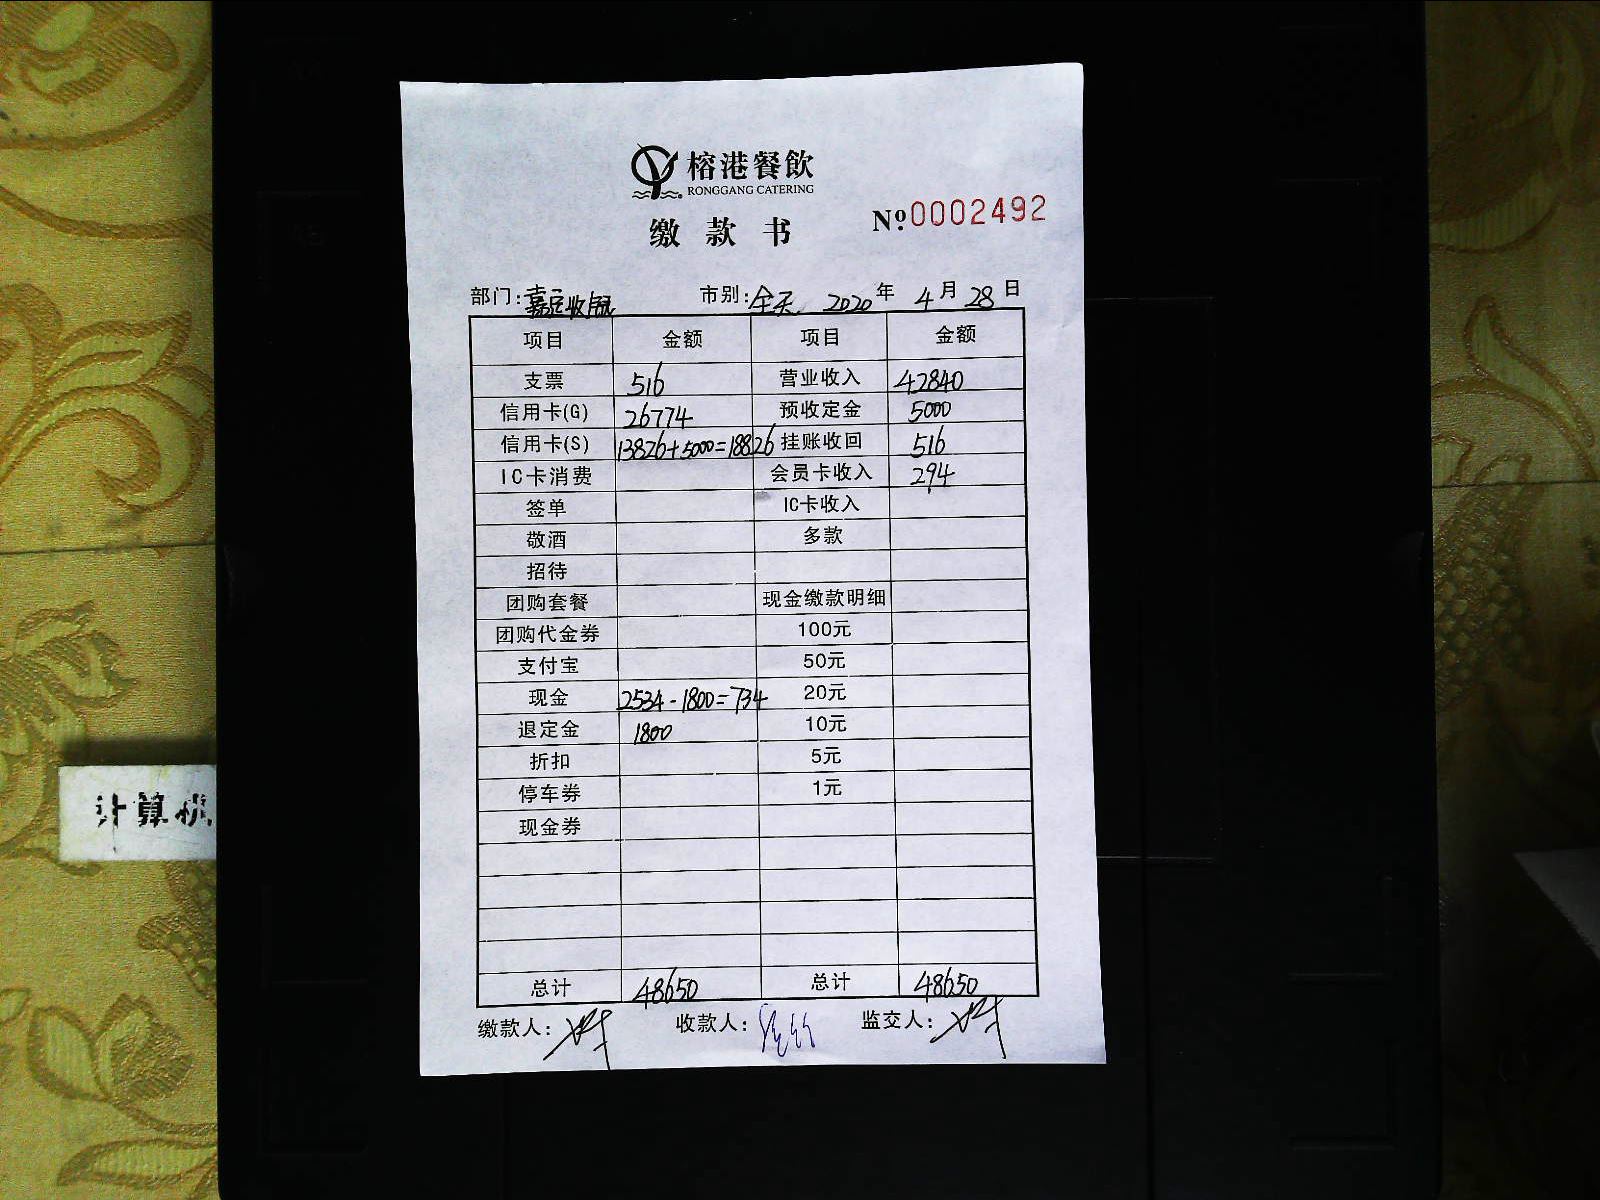 榕港餐飲
RONGGANG CATERING
缴款书
№0002492
部门：嘉定收银 市别：全天 2020年4月28日
项目 金额 项目 金额
支票 516 营业收入 42840
信用卡(G) 26774 预收定金 5000
信用卡(S) 13826+5000=18826 挂账收回 516
IC卡消费 会员卡收入 294
签单 IC卡收入
敬酒 多款
招待
团购套餐 现金缴款明细
团购代金券 100元
支付宝 50元
现金 2534-1800=734 20元
退定金 1800 10元
折扣 5元
停车券 1元
现金券
总计 48650 总计 48650
缴款人： 收款人： 监交人：
计算机